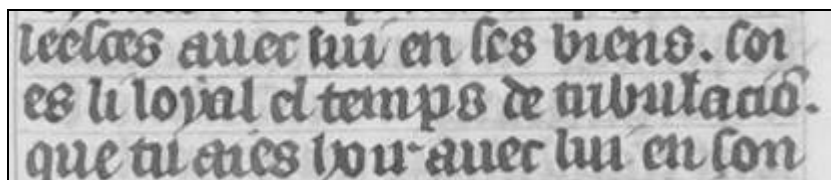 leesces auec lui en ses biens. soi
es li loyal el temps de tribulacio᷑.
que tu aies hoir auec lui en son